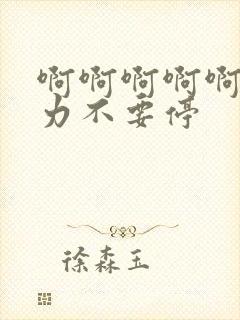 啊啊啊啊啊
力不要停
徐森玉